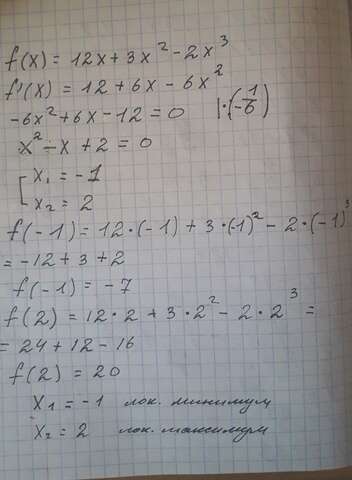 f(x) = 12x + 3x² - 2x³
f'(x) = 12 + 6x - 6x²
-6x² + 6x - 12 = 0 |·(-1/6)
x² - x + 2 = 0
[ x₁ = -1
x₂ = 2
f(-1) = 12·(-1) + 3·(-1)² - 2·(-1)³
= -12 + 3 + 2
f(-1) = -7
f(2) = 12·2 + 3·2² - 2·2³ =
= 24 + 12 - 16
f(2) = 20
x₁ = -1 лок. минимум
x₂ = 2 лок. максимум